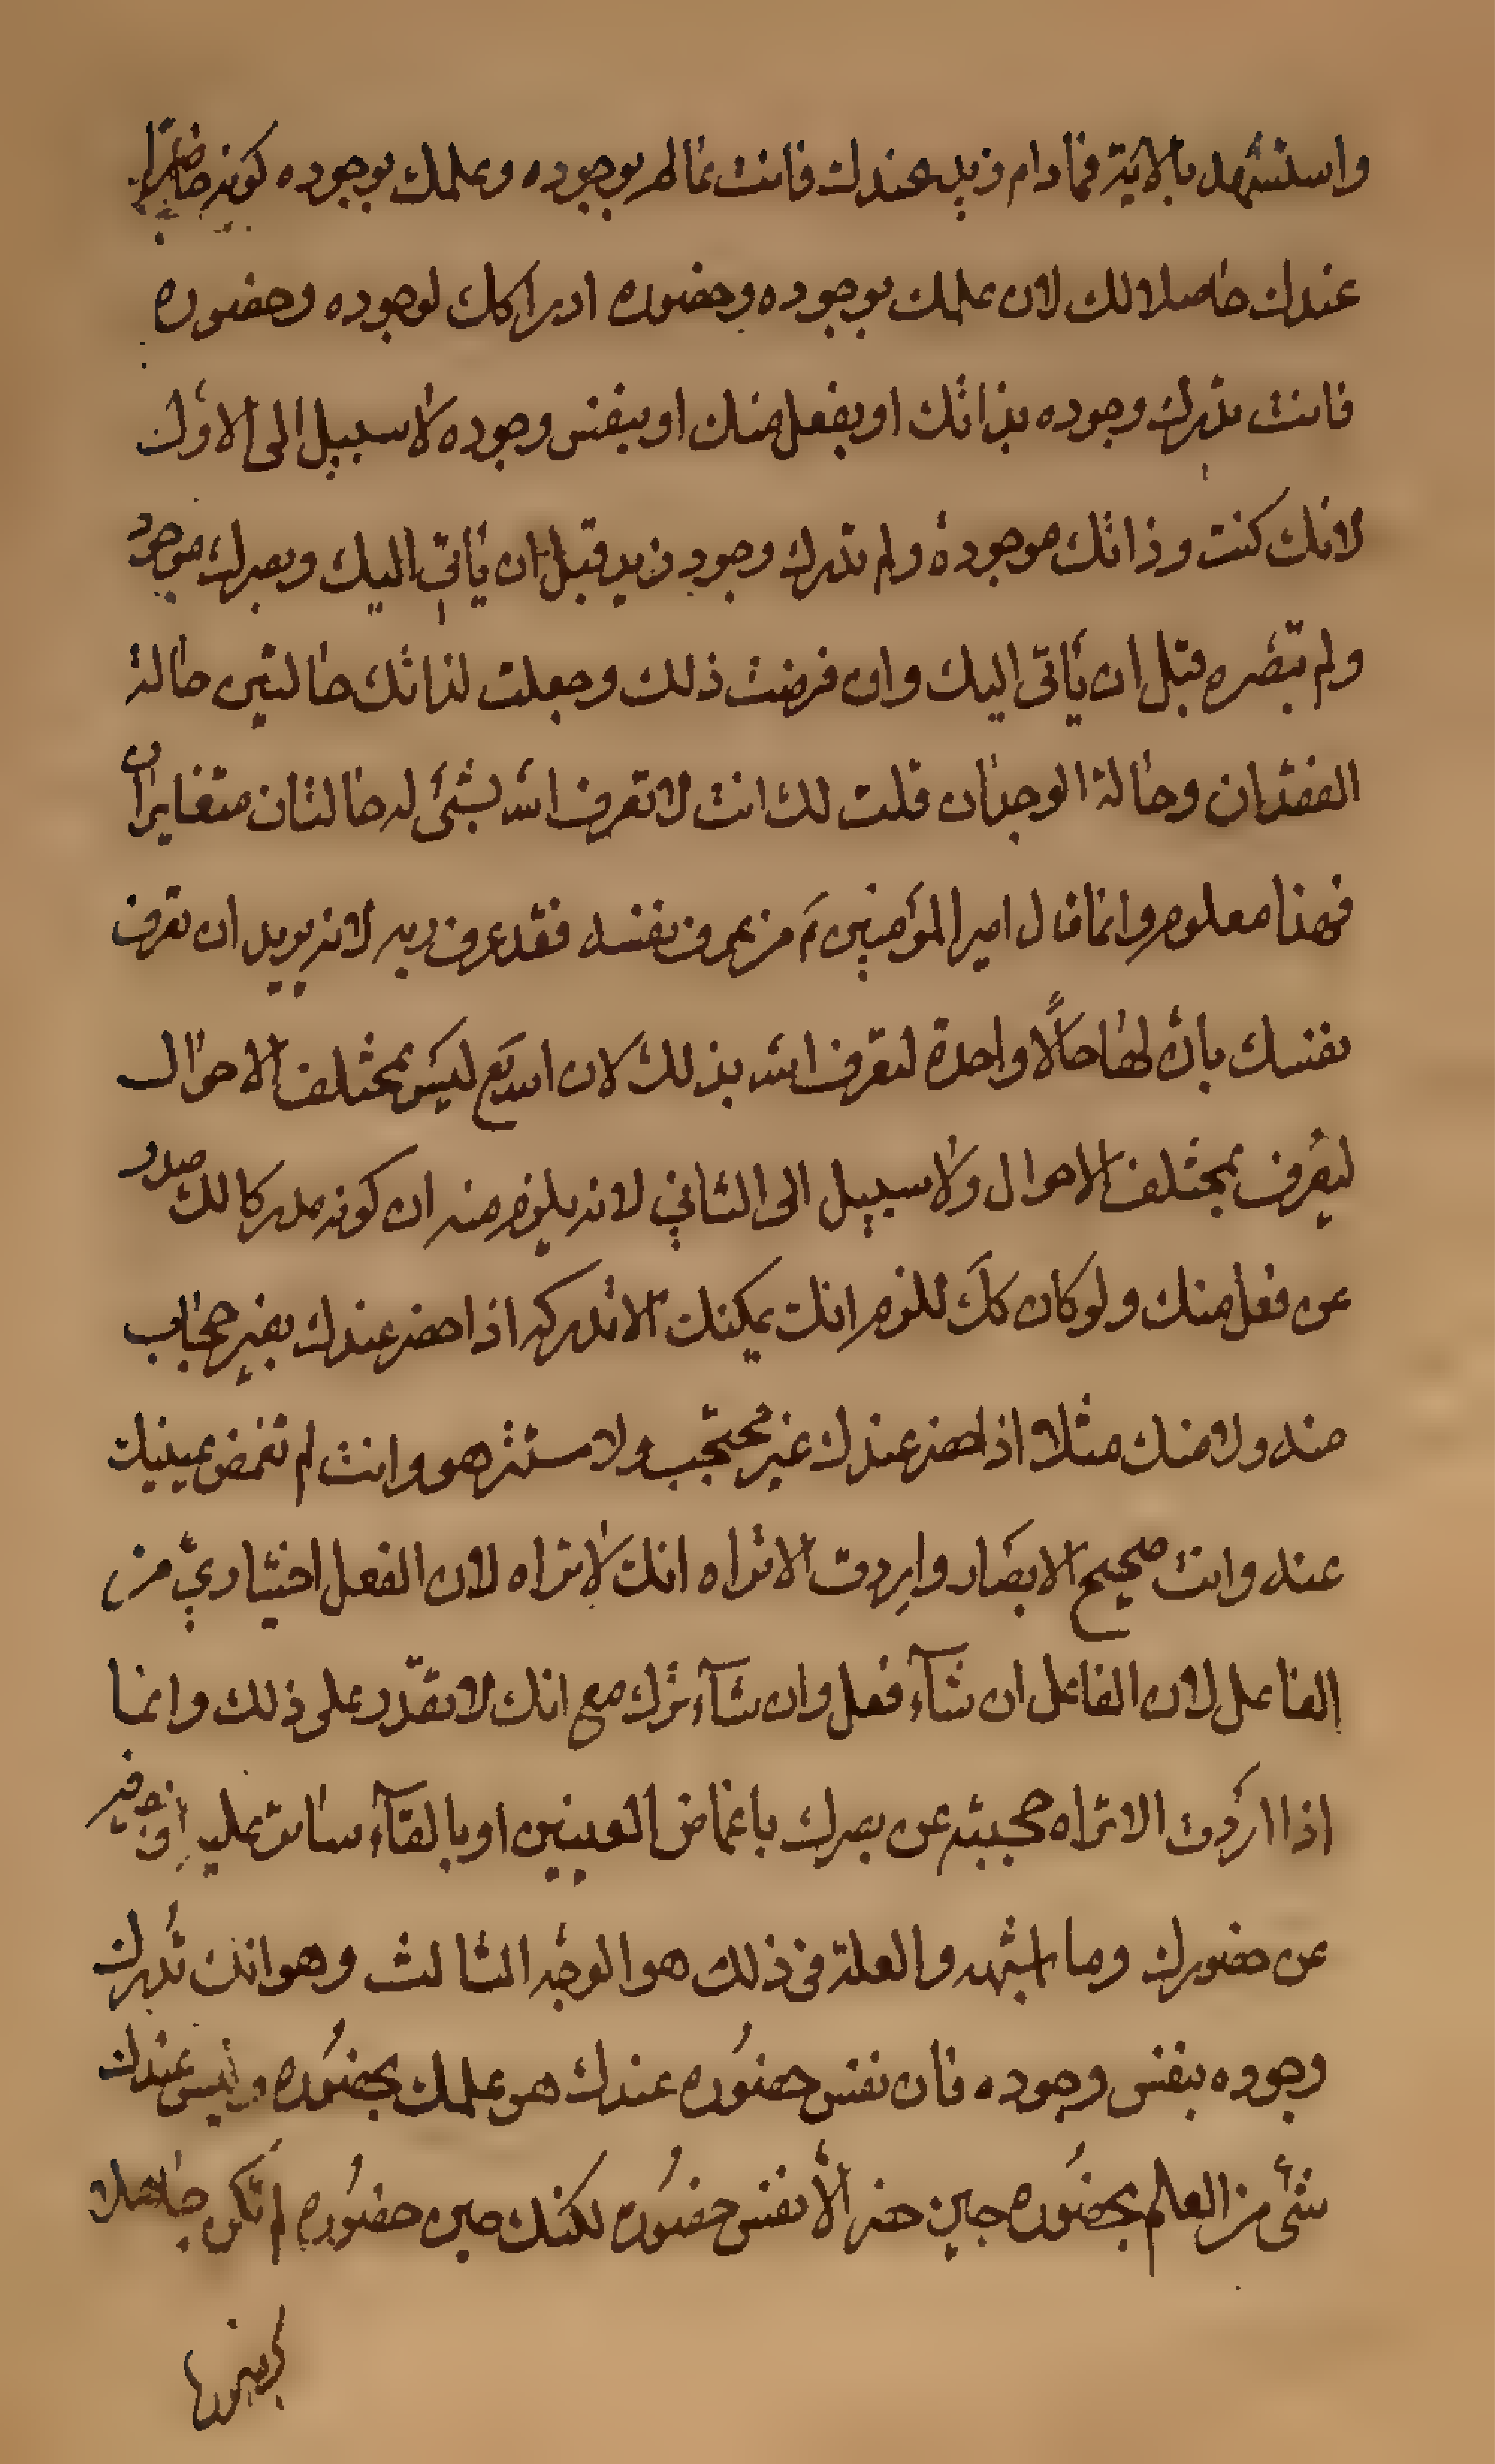 واستشهد بالاية فما دام زيد عندك فانت عالم بوجوده وعلمك بوجوده كونه حاضرا
عندك حاصلا لك لان علمك بوجوده وحضوره ادراكك لوجوده وحضوره
فانت تدرك وجوده بذاتك او بفعل منك او بنفس وجوده لا سبيل الى الاول
لانك كنت وذاتك موجودة ولم تدرك وجود زيد قبل ان ياتي اليك وبصرك موجود
ولم تبصره قبل ان ياتي اليك وان فرضت ذلك وجعلت لذاتك حالتين حالة
الفقدان وحالة الوجدان قلت لك انت لا تعرف الله بشئ له حالتان متغايران
فهذا معلوم وانما قال امير المؤمنين ع من عرف نفسه فقد عرف ربه لانه يريد ان تعرف
نفسك بان لها حالا واحدة لتعرف الله بذلك لان الله تع ليس بمختلف الاحوال
ليعرف بمختلف الاحوال ولا سبيل الى الثاني لانه يلزم منه ان كونه مدركا لك صدر
عن فعل منك ولو كان كك للزم انك يمكنك الا تدركه اذا حضر عندك بغير حجاب
منه ولا منك مثلا اذا حضر عندك غير محتجب ولا مستتر هو وانت لم تغمض عينيك
عنه وانت صحيح الابصار واردت الا تراه انك لا تراه لان الفعل اختياري من
الفاعل لان الفاعل ان شآء فعل وان شآء ترك مع انك لا تقدر على ذلك وانما
اذا اردت الا تراه حجبته عن بصرك باغماض العينين او بالقآء ساتر عليه
عن حضورك وما اشبهه والعلة في ذلك هو الوجه الثالث وهو انك تدرك
وجوده بنفس وجوده فان نفس حضوره عندك هو علمك بحضوره وليس عندك
شئ من العلم بحضوره حين حضر الا نفس حضوره لكنك حين حضوره لم تكن جاهلا